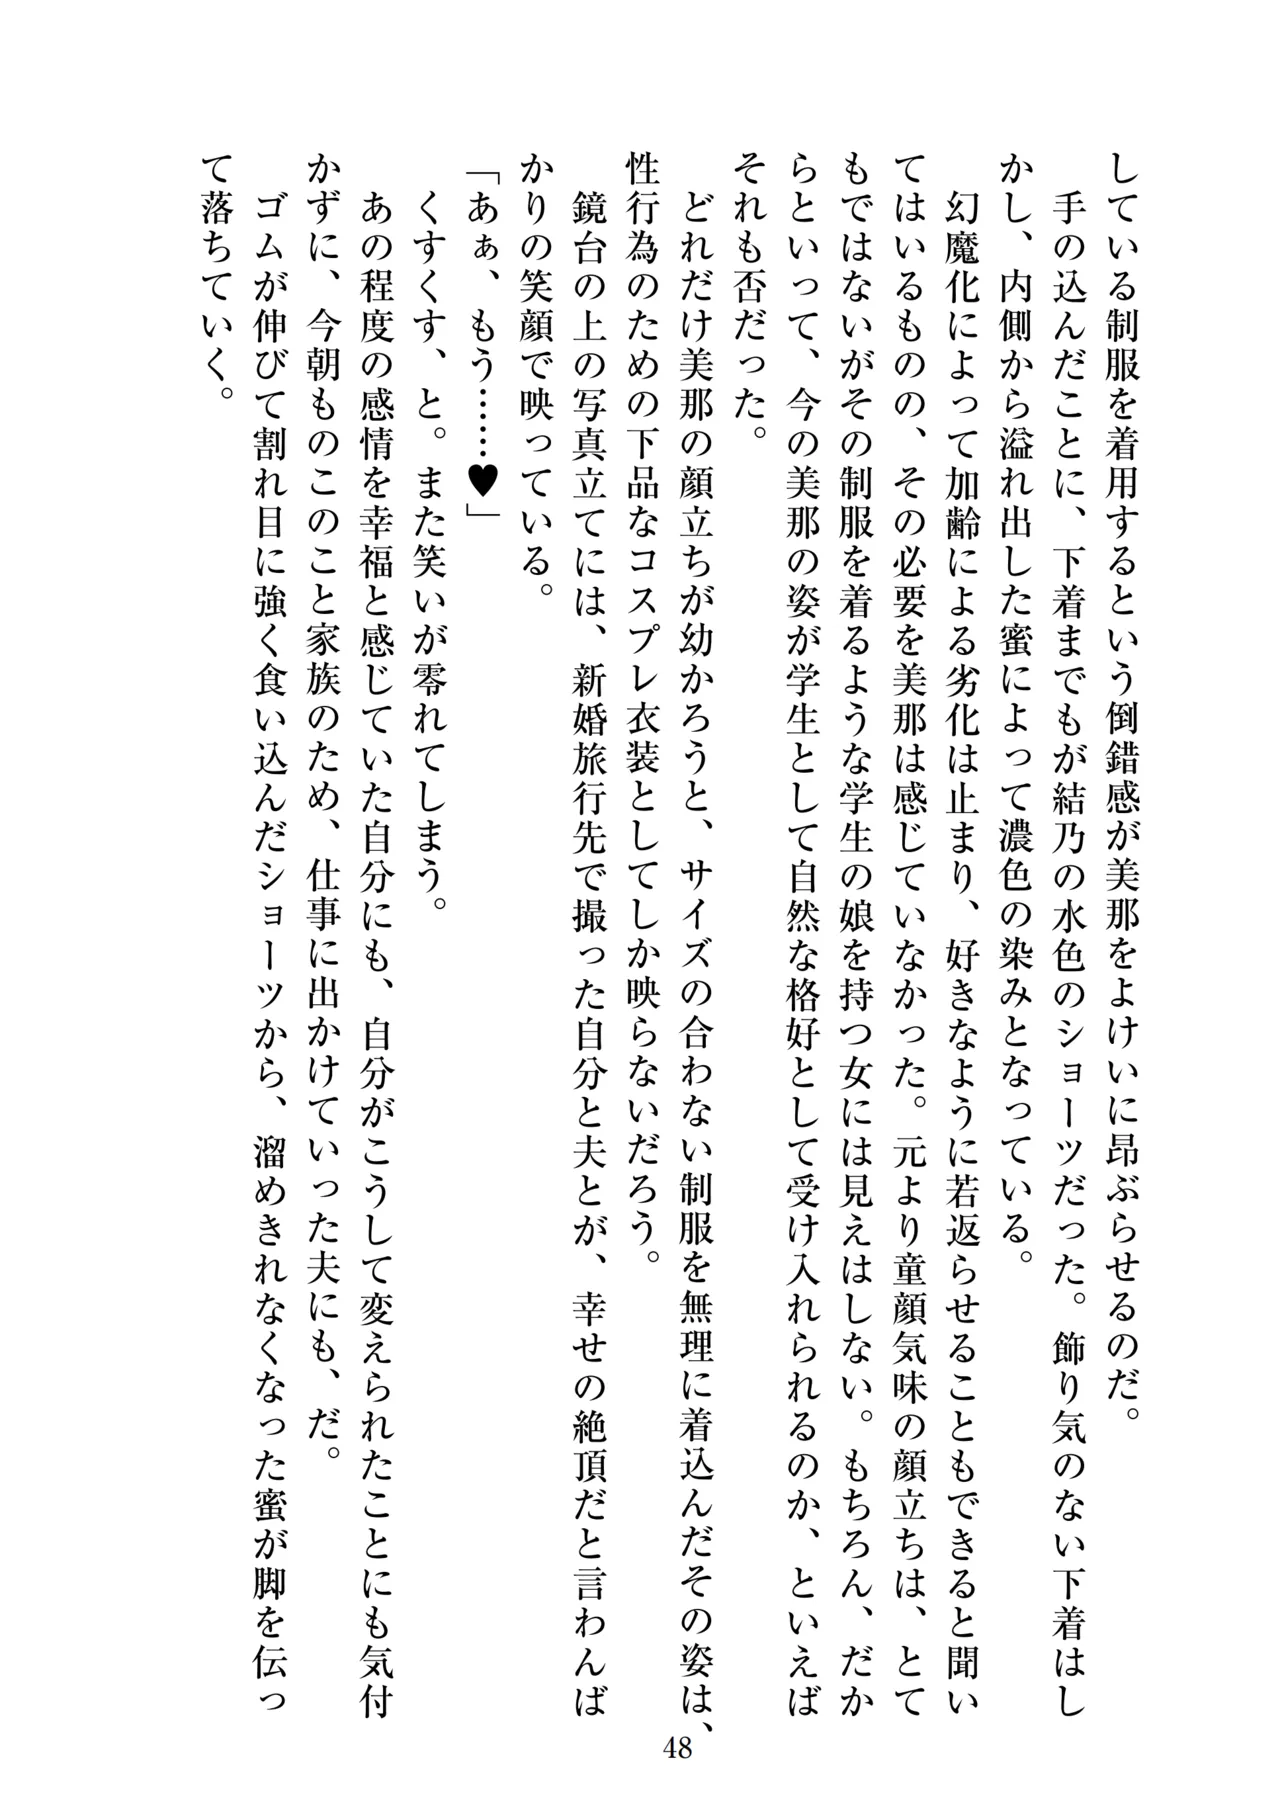 している制服を着用するという倒錯感が美那をよけいに昂ぶらせるのだ。
手の込んだことに、下着までもが結乃の水色のショーツだった。飾り気のない下着はし
かし、内側から溢れ出した蜜によって濃色の染みとなっている。
幻魔化によって加齢による劣化は止まり、好きなように若返らせることもできると聞い
てはいるものの、その必要を美那は感じていなかった。元より童顔気味の顔立ちは、とて
もではないがその制服を着るような学生の娘を持つ女には見えはしない。もちろん、だか
らといって、今の美那の姿が学生として自然な格好として受け入れられるのか、といえば
それも否だった。
どれだけ美那の顔立ちが幼かろうと、サイズの合わない制服を無理に着込んだその姿は、
性行為のための下品なコスプレ衣装としてしか映らないだろう。
鏡台の上の写真立てには、新婚旅行先で撮った自分と夫とが、幸せの絶頂だと言わんば
かりの笑顔で映っている。
「あぁ、もう……♥」
くすくす、と。また笑いが零れてしまう。
あの程度の感情を幸福と感じていた自分にも、自分がこうして変えられたことにも気付
かずに、今朝ものこのこと家族のため、仕事に出かけていった夫にも、だ。
ゴムが伸びて割れ目に強く食い込んだショーツから、溜めきれなくなった蜜が脚を伝っ
て落ちていく。
48